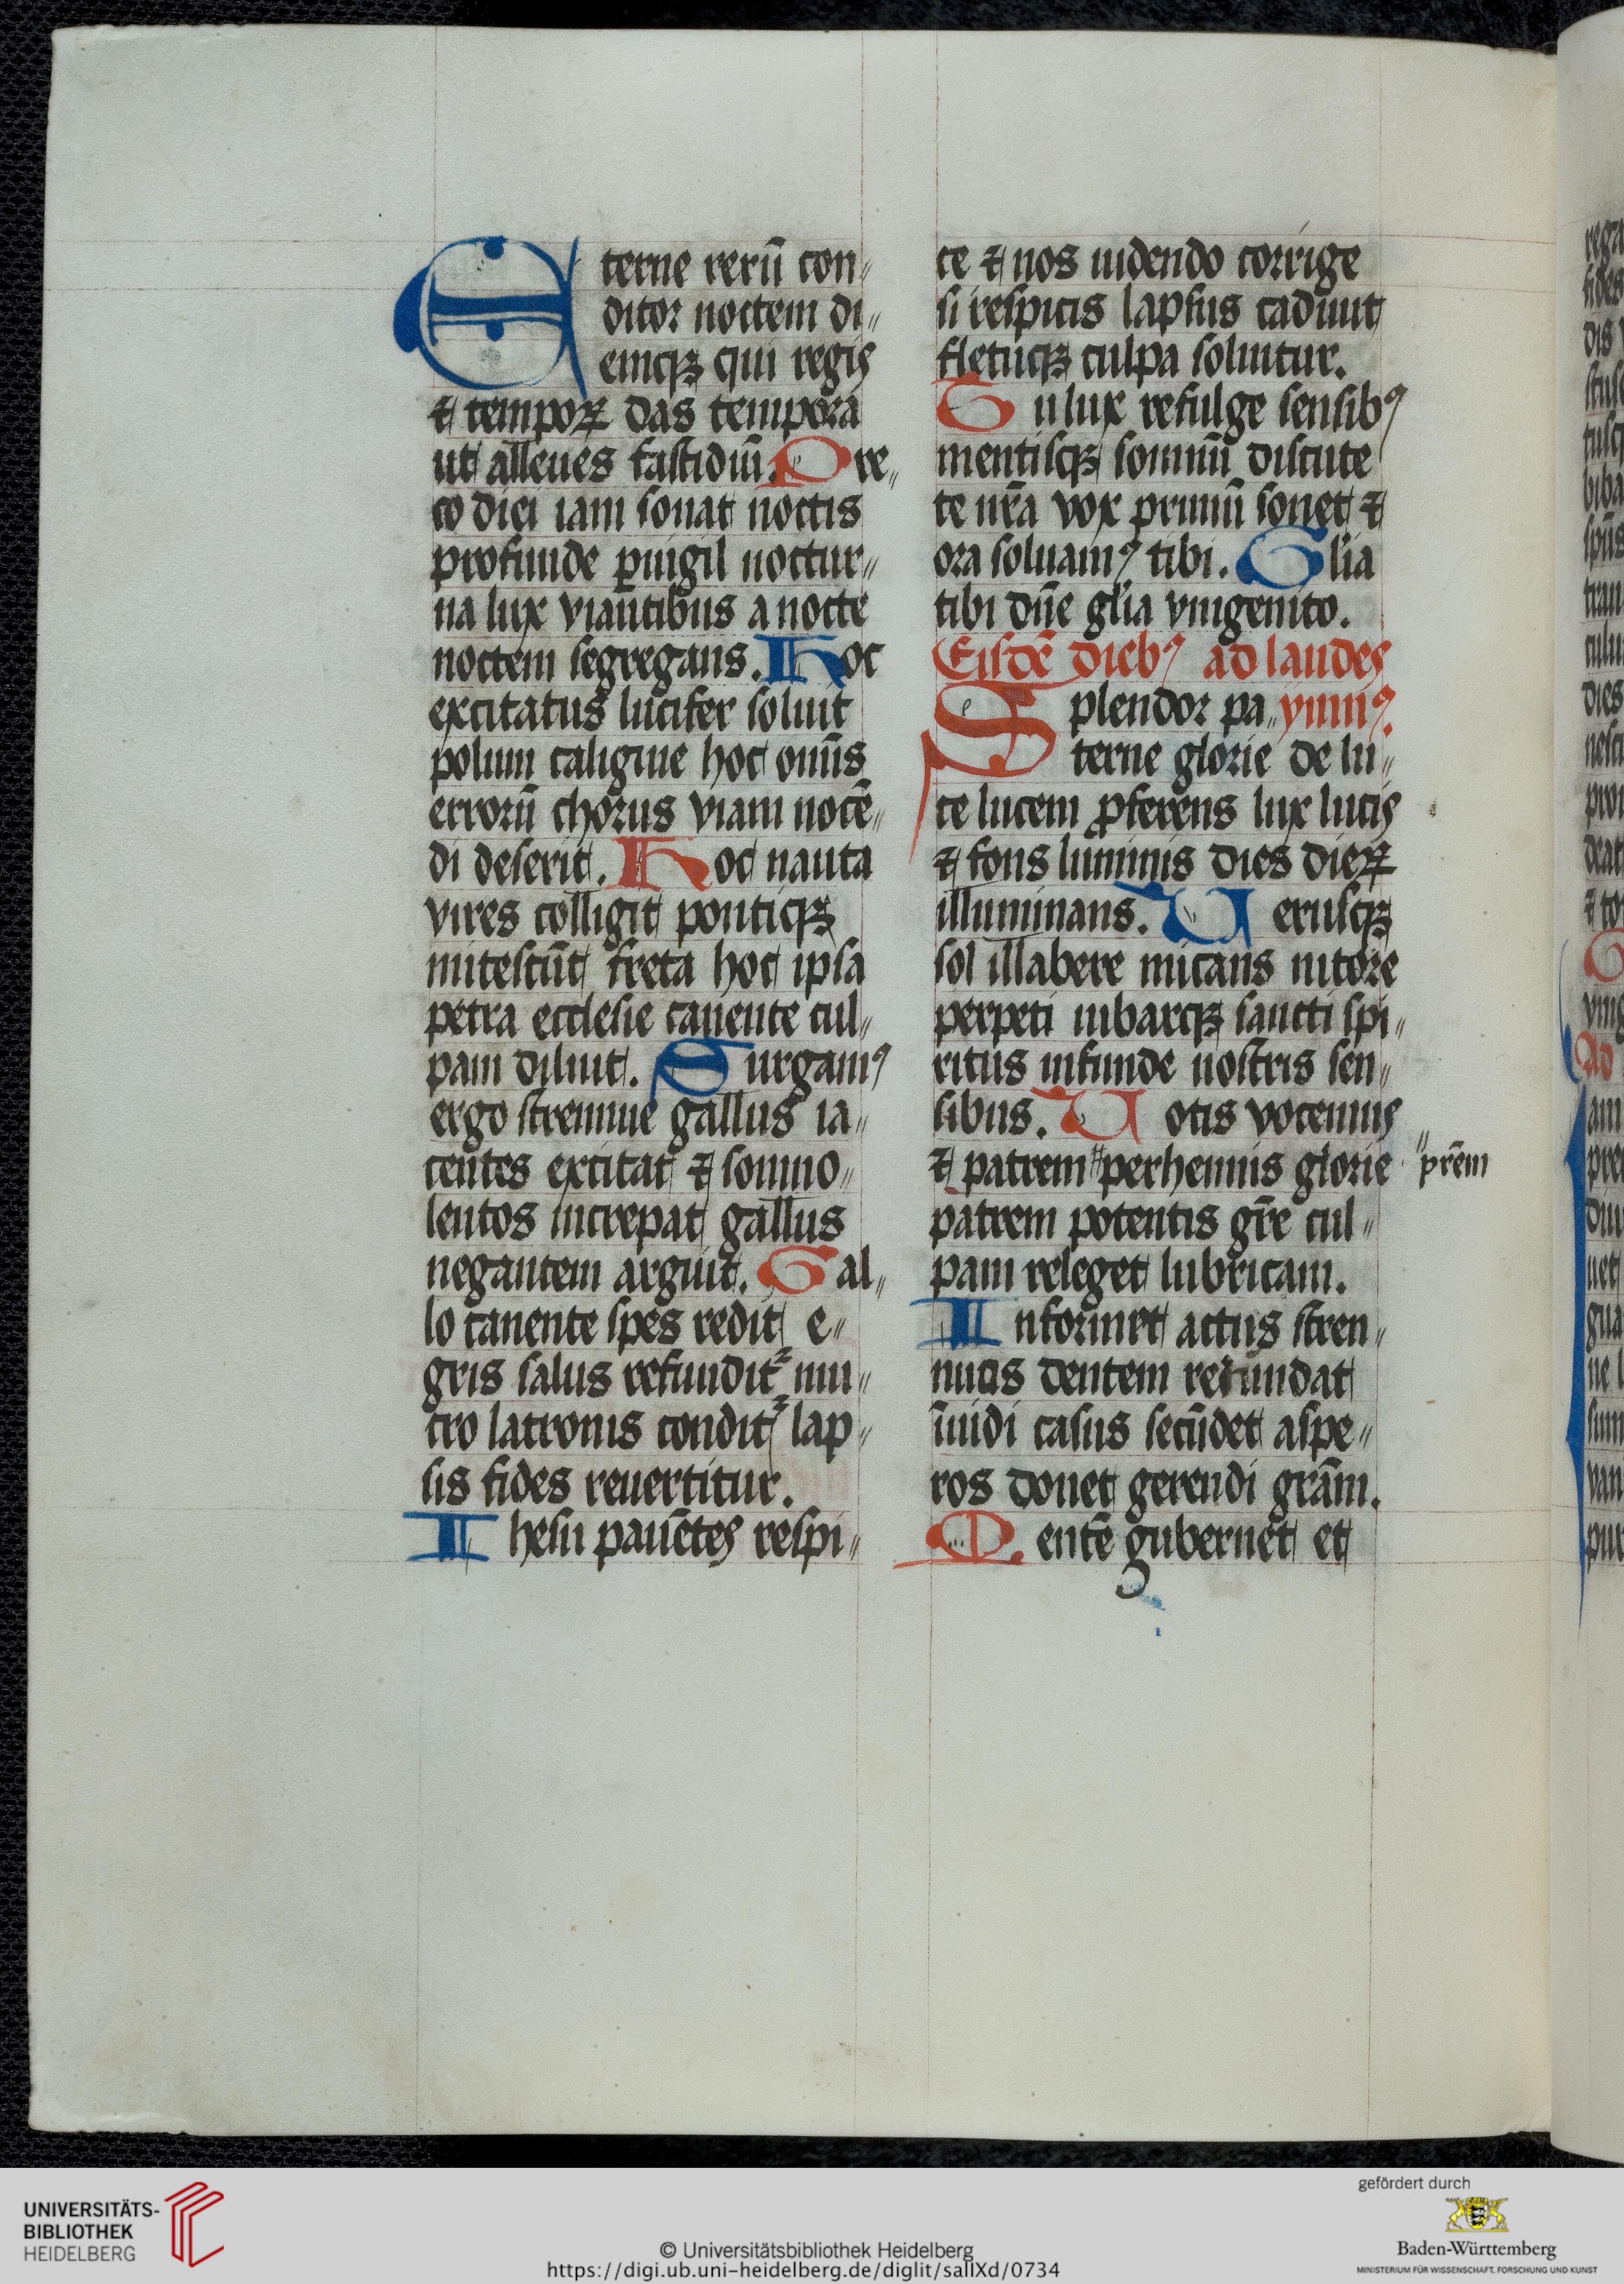 Eterne rerū con„
ditor noctem di„
emqꝫ qui regis
⁊ tempoꝝ das tempora
ut alleues fastidiū. Pre„
co diei iam sonat noctis
profunde ꝑuigil noctur„
na lux viantibus a nocte
noctem segregans. Hoc
excitatus lucifer soluit
polum caligine hoc om̄is
errorū chorus viam nocē„
di deserit. Hoc nauta
vires colligit pontiqꝫ
mitescūt freta hoc ipsa
petra ecclesie canente cul„
pam diluit. Surgamꝰ
ergo strennue gallus ia„
centes excitat ⁊ somno„
lentos increpat gallus
negantem arguit. Gal„
lo canente spes redit e„
gris salus refundit᷑ mu„
cro latronis condit᷑ lap„
sis fides reuertitur.
Ihesu pauētes respi„
ce ⁊ nos uidendo corrige
si respicis lapsus cadūut
fletuqꝫ culpa soluitur.
Tu lux refulge sensibꝰ
mentisqꝫ somnū discute
te nr̄a vox primū sonet ⁊
ora soluamꝰ tibi. Gl̄ia
tibi dn̄e gl̄ia vnigenito.
Eisdē diebꝰ ad laudes
Splendor pa„ ymnꝰ.
terne glorie de lu„
ce lucem ꝓferens lux lucis
⁊ fons luminis dies dieꝝ
illuminans. Verusqꝫ
sol illabere micans nitore
perpeti iubarqꝫ sancti spi„
ritus infunde nostris sen„
sibus. Uotis vocemus
⁊ patrem perhennis glorie „pr̄em
patrem potentis gr̄e cul„
pam releget lubricam.
Informet actus stren„
nuos dentem retundat
inuidi casus secūdet aspe„
ros donet gerendi gr̄am.
Mentē gubernet et
UNIVERSITÄTS-
BIBLIOTHEK
HEIDELBERG
© Universitätsbibliothek Heidelberg
https://digi.ub.uni-heidelberg.de/diglit/sallXd/0734
gefördert durch
Baden-Württemberg
MINISTERIUM FÜR WISSENSCHAFT, FORSCHUNG UND KUNST